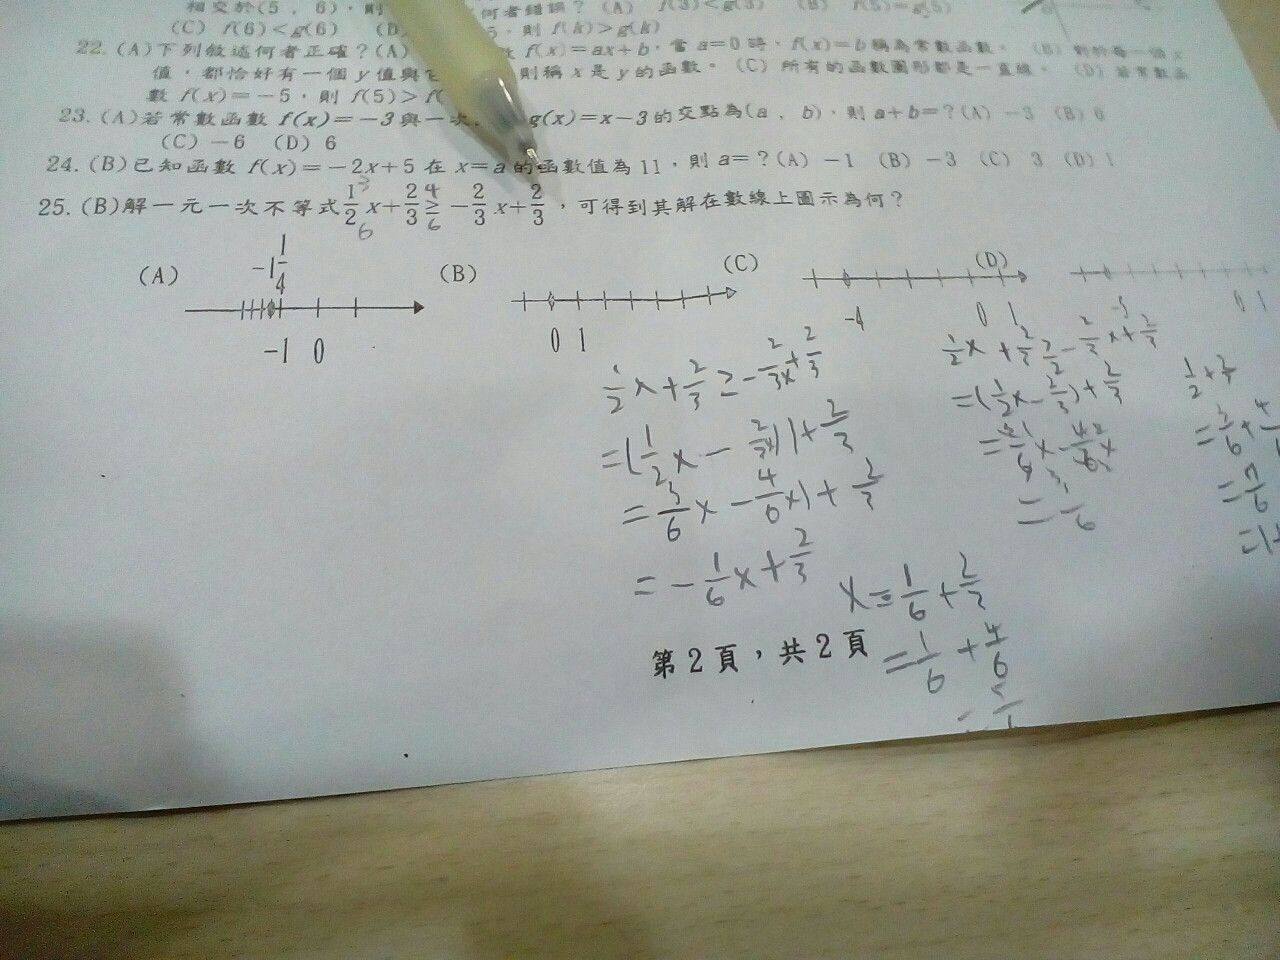 相交於(5，6)，則 何者錯誤？(A) f(3)<g(3) (B) f(5)=g(5)
(C) f(6)<g(6) (D 5，則 f(k)>g(k)
22.(A)下列敘述何者正確？(A) 數 f(x)=ax+b，當 a=0 時，f(x)=b 稱為常數函數。 (B) 對於每一個 x
值，都恰好有一個 y 值與它 則稱 x 是 y 的函數。 (C) 所有的函數圖形都是一直線。 (D) 若常數函
數 f(x)=-5，則 f(5)>f(
23.(A)若常數函數 f(x)=-3與一次 g(x)=x-3的交點為(a，b)，則 a+b=？(A) -3 (B) 0
(C) -6 (D) 6
24.(B)已知函數 f(x)=-2x+5 在 x=a 的函數值為 11，則 a=？(A) -1 (B) -3 (C) 3 (D) 1
25.(B)解一元一次不等式 1/2 x+2/3 ≥ -2/3 x+2/3，可得到其解在數線上圖示為何？
3 4
6 6
(A) (B) (C) (D)
-1 1/4
-1 0
0 1
-4 0 1
0 1
1/2 x + 2/3 ≥ - 2/3 x + 2/3
=(1/2 x - 2/3 x) + 2/3
= 3/6 x - 4/6 x) + 2/3
= - 1/6 x + 2/3
x = 1/6 + 2/3
= 1/6 + 4/6
1/2 x + 2/3 ≥ - 2/3 x + 2/3
=(1/2 x - 2/3) + 2/3
= 3/6 +
第 2 頁，共 2 頁